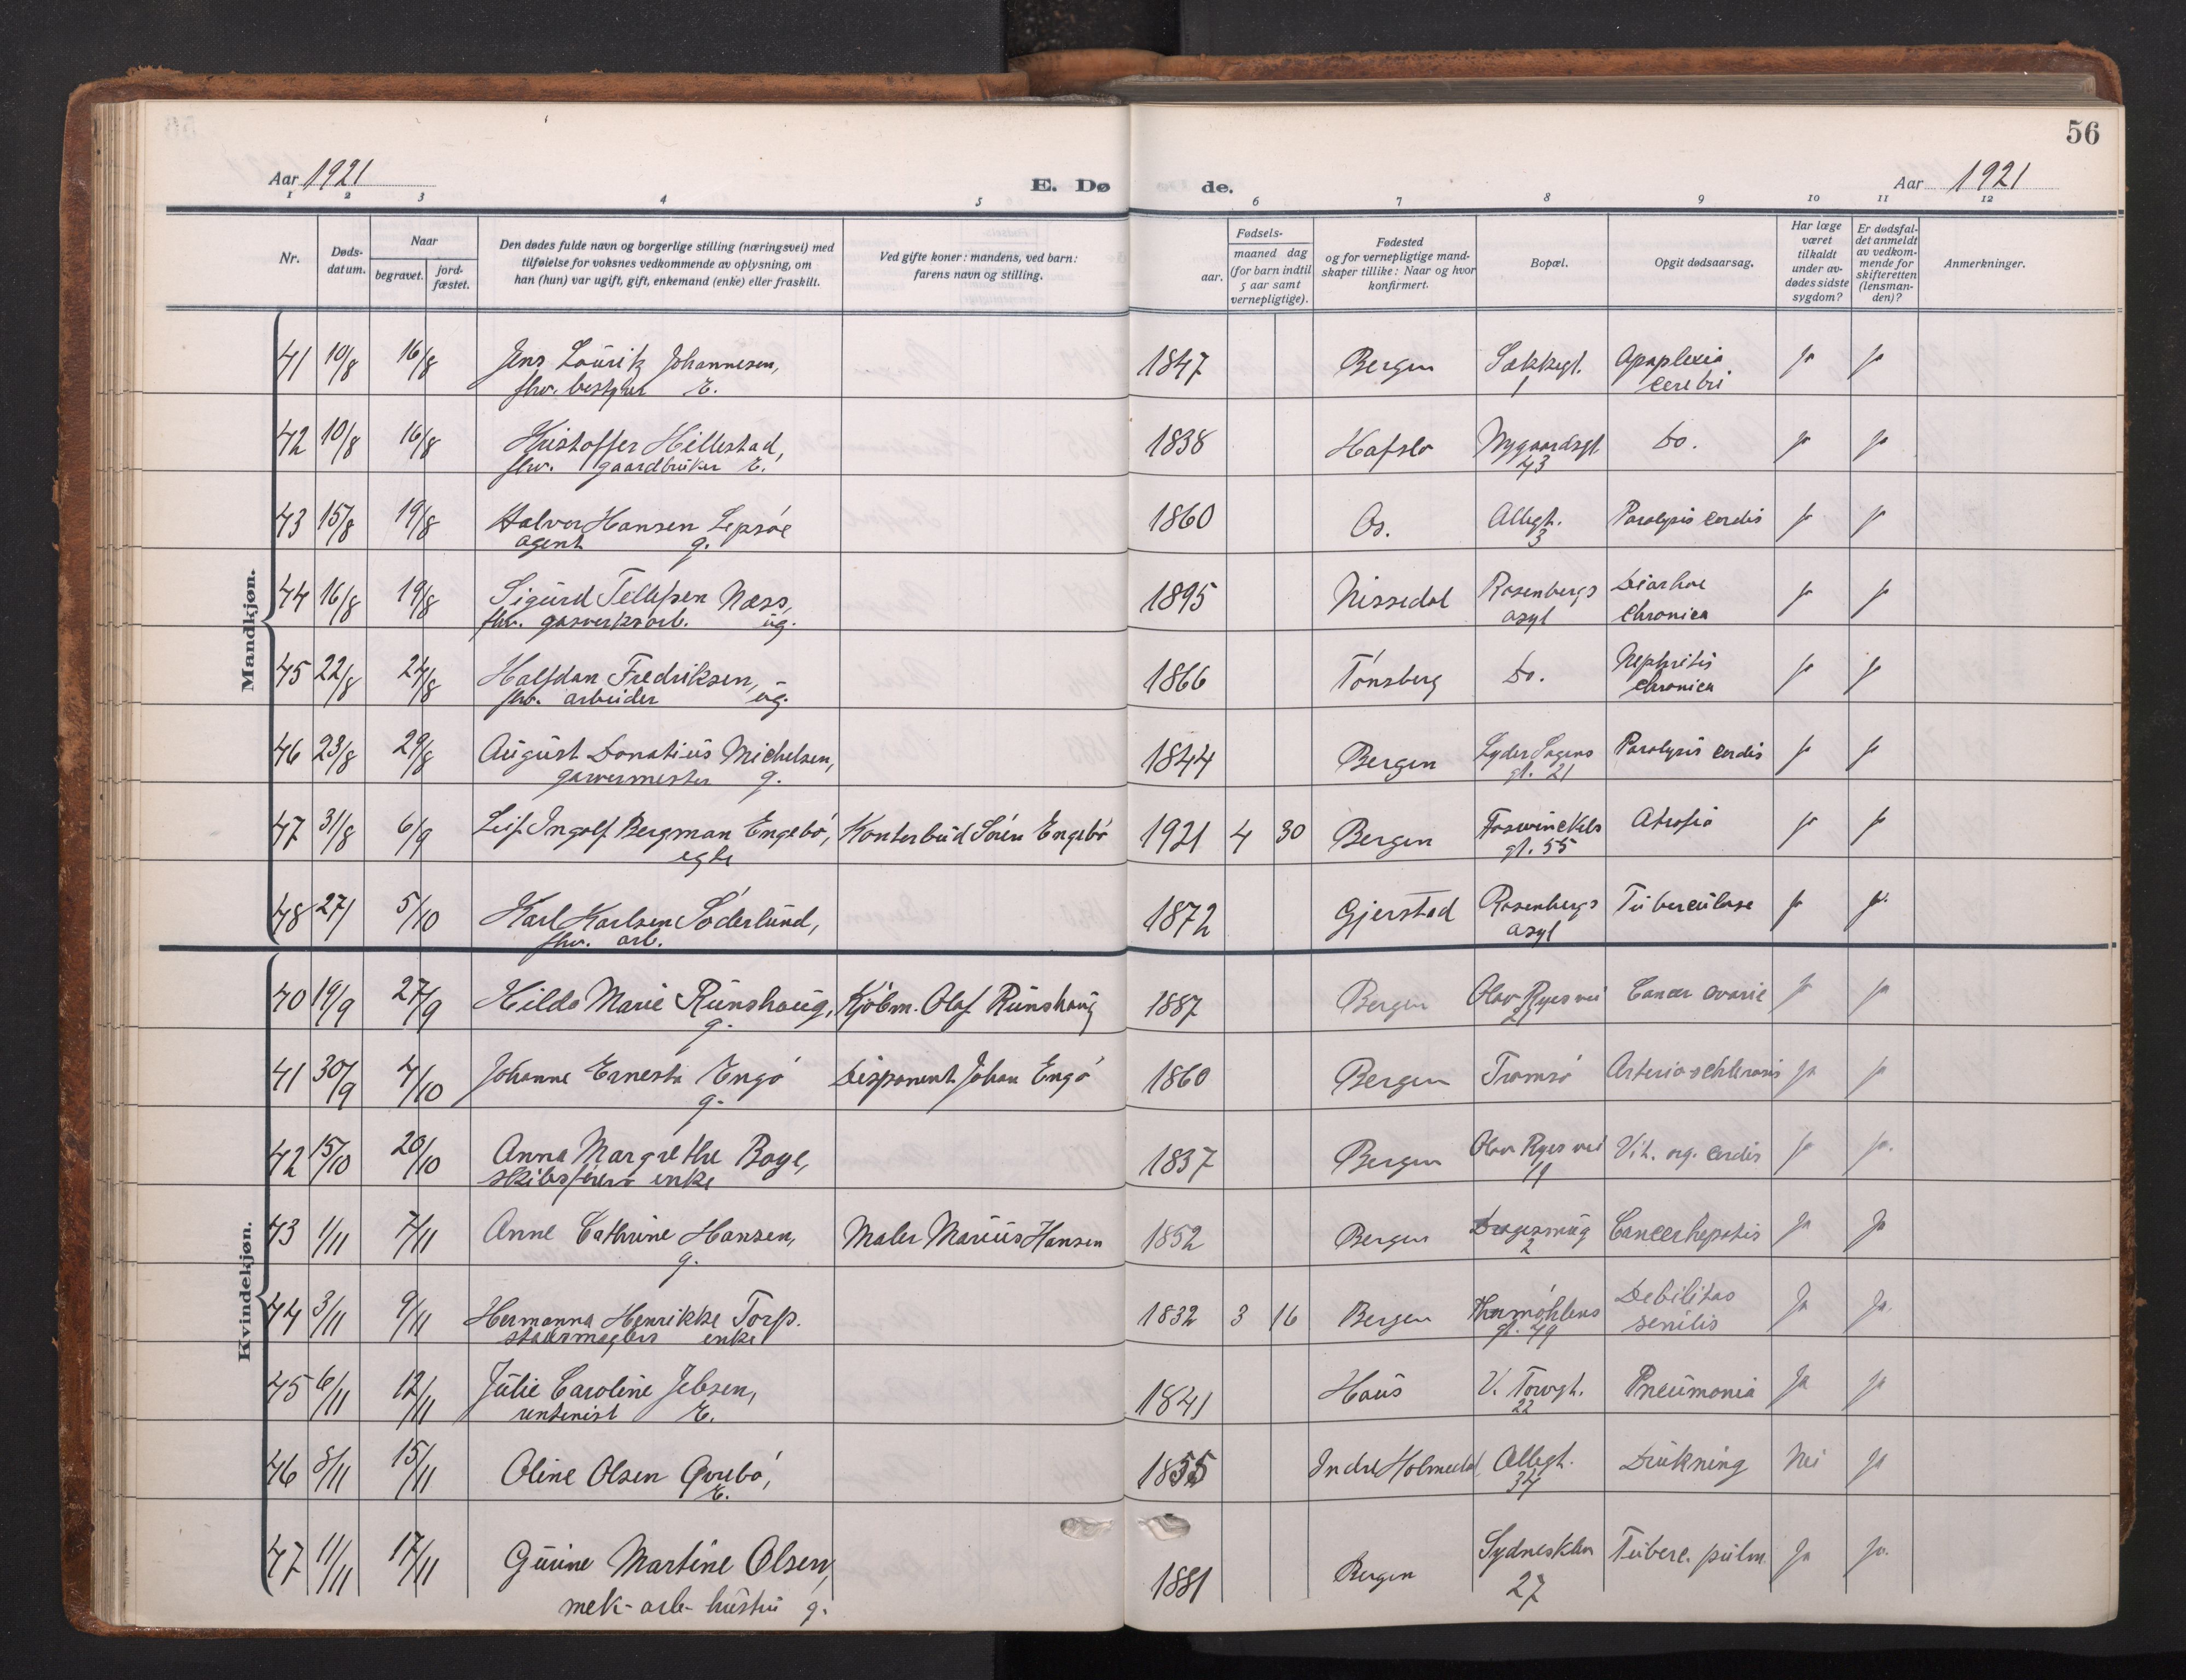 56
Aar 1921
E. Dø de.
Aar 1921
1 2 3 4 5 6 7 8 9 10 11 12
Nr.
Døds-datum.
Naar
begravet.
jord-fæstet.
Den dødes fulde navn og borgerlige stilling (næringsvei) med
tilføielse for voksnes vedkommende av oplysning, om
han (hun) var ugift, gift, enkemand (enke) eller fraskilt.
Ved gifte koner: mandens, ved barn:
farens navn og stilling.
aar.
Fødsels-
maaned dag
(for barn indtil
5 aar samt
vernepligtige).
Fødested
og for vernepligtige mand-
skaper tillike: Naar og hvor
konfirmert.
Bopæl.
Opgit dødsaarsag.
Har læge
været
tilkaldt
under av-
dødes sidste
sygdom?
Er dødsfal-
det anmeldt
av vedkom-
mende for
skifteretten
(lensman-
den)?
Anmerkninger.
Mandkjøn.
41 10/8 16/8 Jens Lauritz Johannesen, 1847 Bergen Sekkegt. Apoplexia ja ja
fhv. bestyrer E. 1 cerebri
42 10/8 16/8 Kristoffer Hillestad, 1838 Hafslo Nygaardsgt Do. ja ja
fhv. gaardbruker E. 43
43 15/8 19/8 Halvor Hansen Lepsöe 1860 Os. Allegt. Paralysis cordis ja ja
agent g. 3
44 16/8 19/8 Sigurd Tellefsen Næss, 1895 Nissedal Rosenbergs Diarhoe ja ja
fhv. gasverksarb. ug. asyl chronica
45 22/8 24/8 Halfdan Fredriksen, 1866 Tönsberg Do. Nephritis ja ja
fhv. arbeider ug. chronica
46 23/8 29/8 August Donatius Michelsen, 1844 Bergen Lyder Sagens Paralysis cordis ja ja
garvermester g. gt. 21
47 31/8 6/9 Leif Ingolf Bergman Engebö, Kontorbud Sören Engebö 1921 4 30 Bergen Foswinckels Atrofia ja ja
egte gt. 55
48 27/ 5/10 Karl Karlsen Söderlund, 1872 Gjerstad Rosenbergs Tuberculose ja ja.
fhv. arb. asyl
Kvindekjøn.
40 19/9 27/9 Hilda Marie Runshaug, Kjöbm. Olaf Runshaug 1887 Bergen Olav Ryes vei Cancer ovarie ja ja
g. 21
41 30/9 4/10 Johanne Ernesta Engö Disponent Johan Engö 1860 Bergen Tromsö Arterio-schlerosis ja ja
g.
42 15/10 20/10 Anna Margrethe Boye, 1837 Bergen Olav Ryes vei Vit. org. cordis ja ja.
skibsförers enke 19
43 1/11 7/11 Anne Cathrine Hansen, Maler Marius Hansen 1852 Bergen Dragesmug Cancer hepatis ja ja
g. 2
44 3/11 9/11 Hermanna Henrikke Torp. 1832 3 16 Bergen Thormöhlens Debilitas ja ja.
enke gt. 49 senilis
45 6/11 12/11 Julie Caroline Jebsen, 1841 Haus V. Torvgt. Pneumonia ja ja
rentenist E. 22
46 8/11 15/11 Oline Olsen Qvebö, 1855 Indre Holmedal Allegt. Drukning Nei ja
E. 34
47 11/11 17/11 Gurine Martine Olsen, 1881 Bergen Sydneskleiv Tuberc. pulm. ja ja.
mek-arb- hustru g. 27